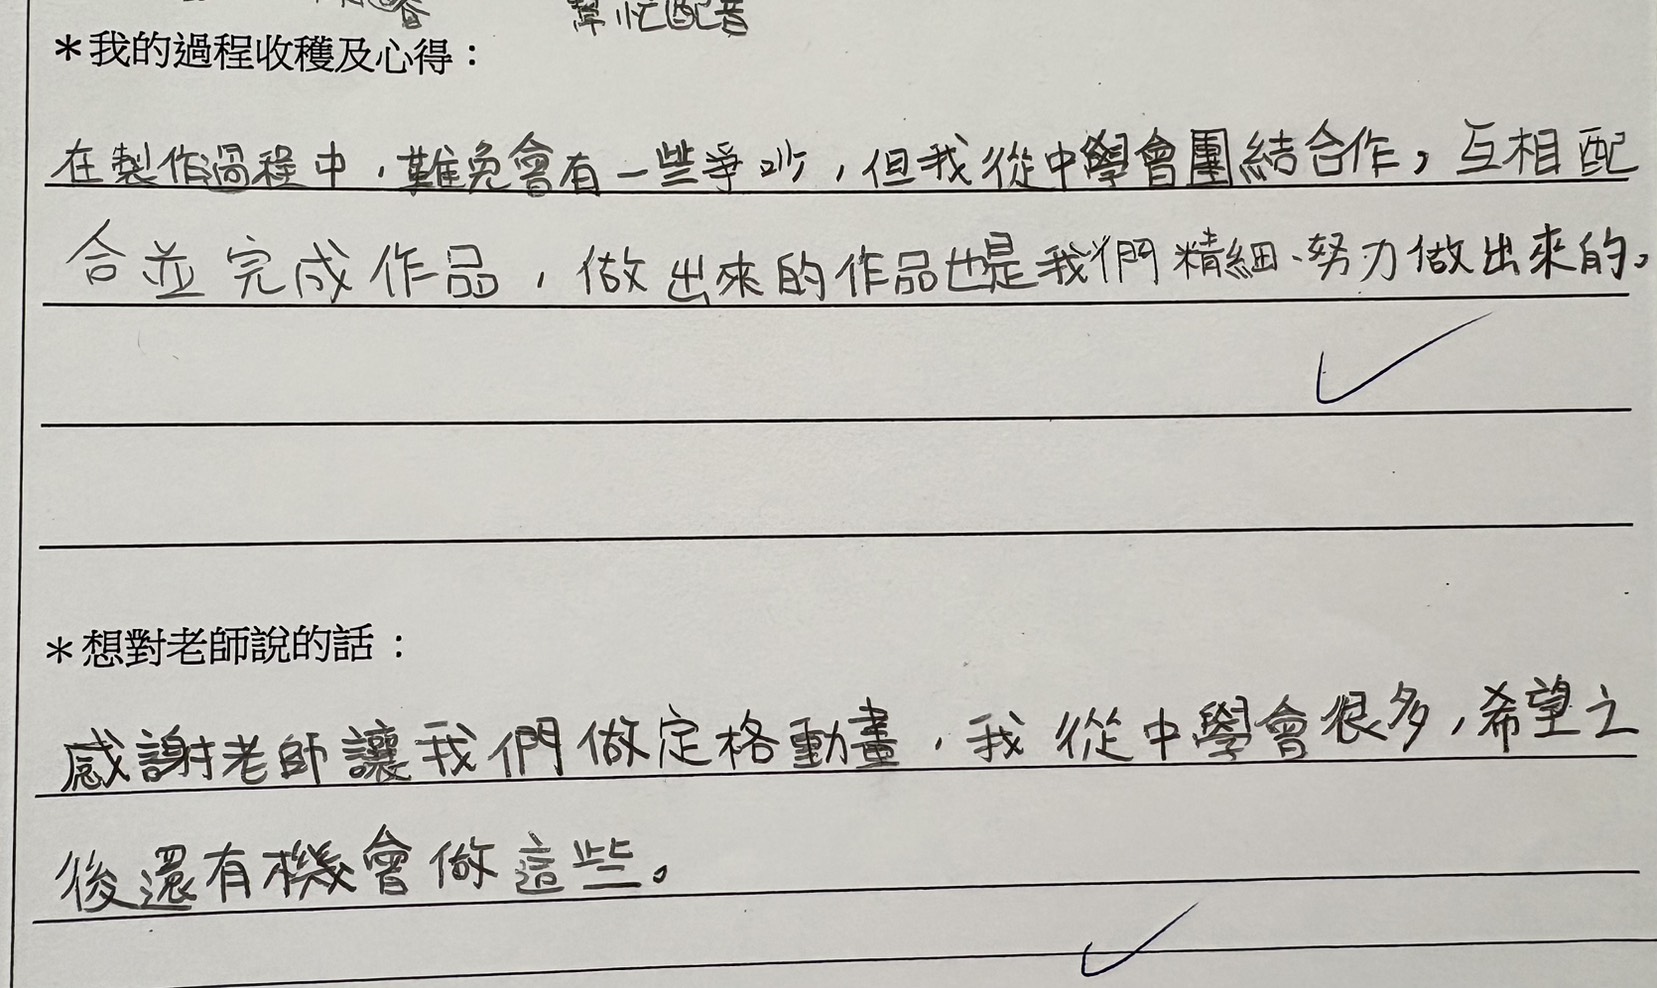 幫忙配音
＊我的過程收穫及心得：
在製作過程中，難免會有一些爭吵，但我從中學會團結合作，互相配
合並完成作品，做出來的作品也是我們精細、努力做出來的。
＊想對老師說的話：
感謝老師讓我們做定格動畫，我從中學會很多，希望之
後還有機會做這些。